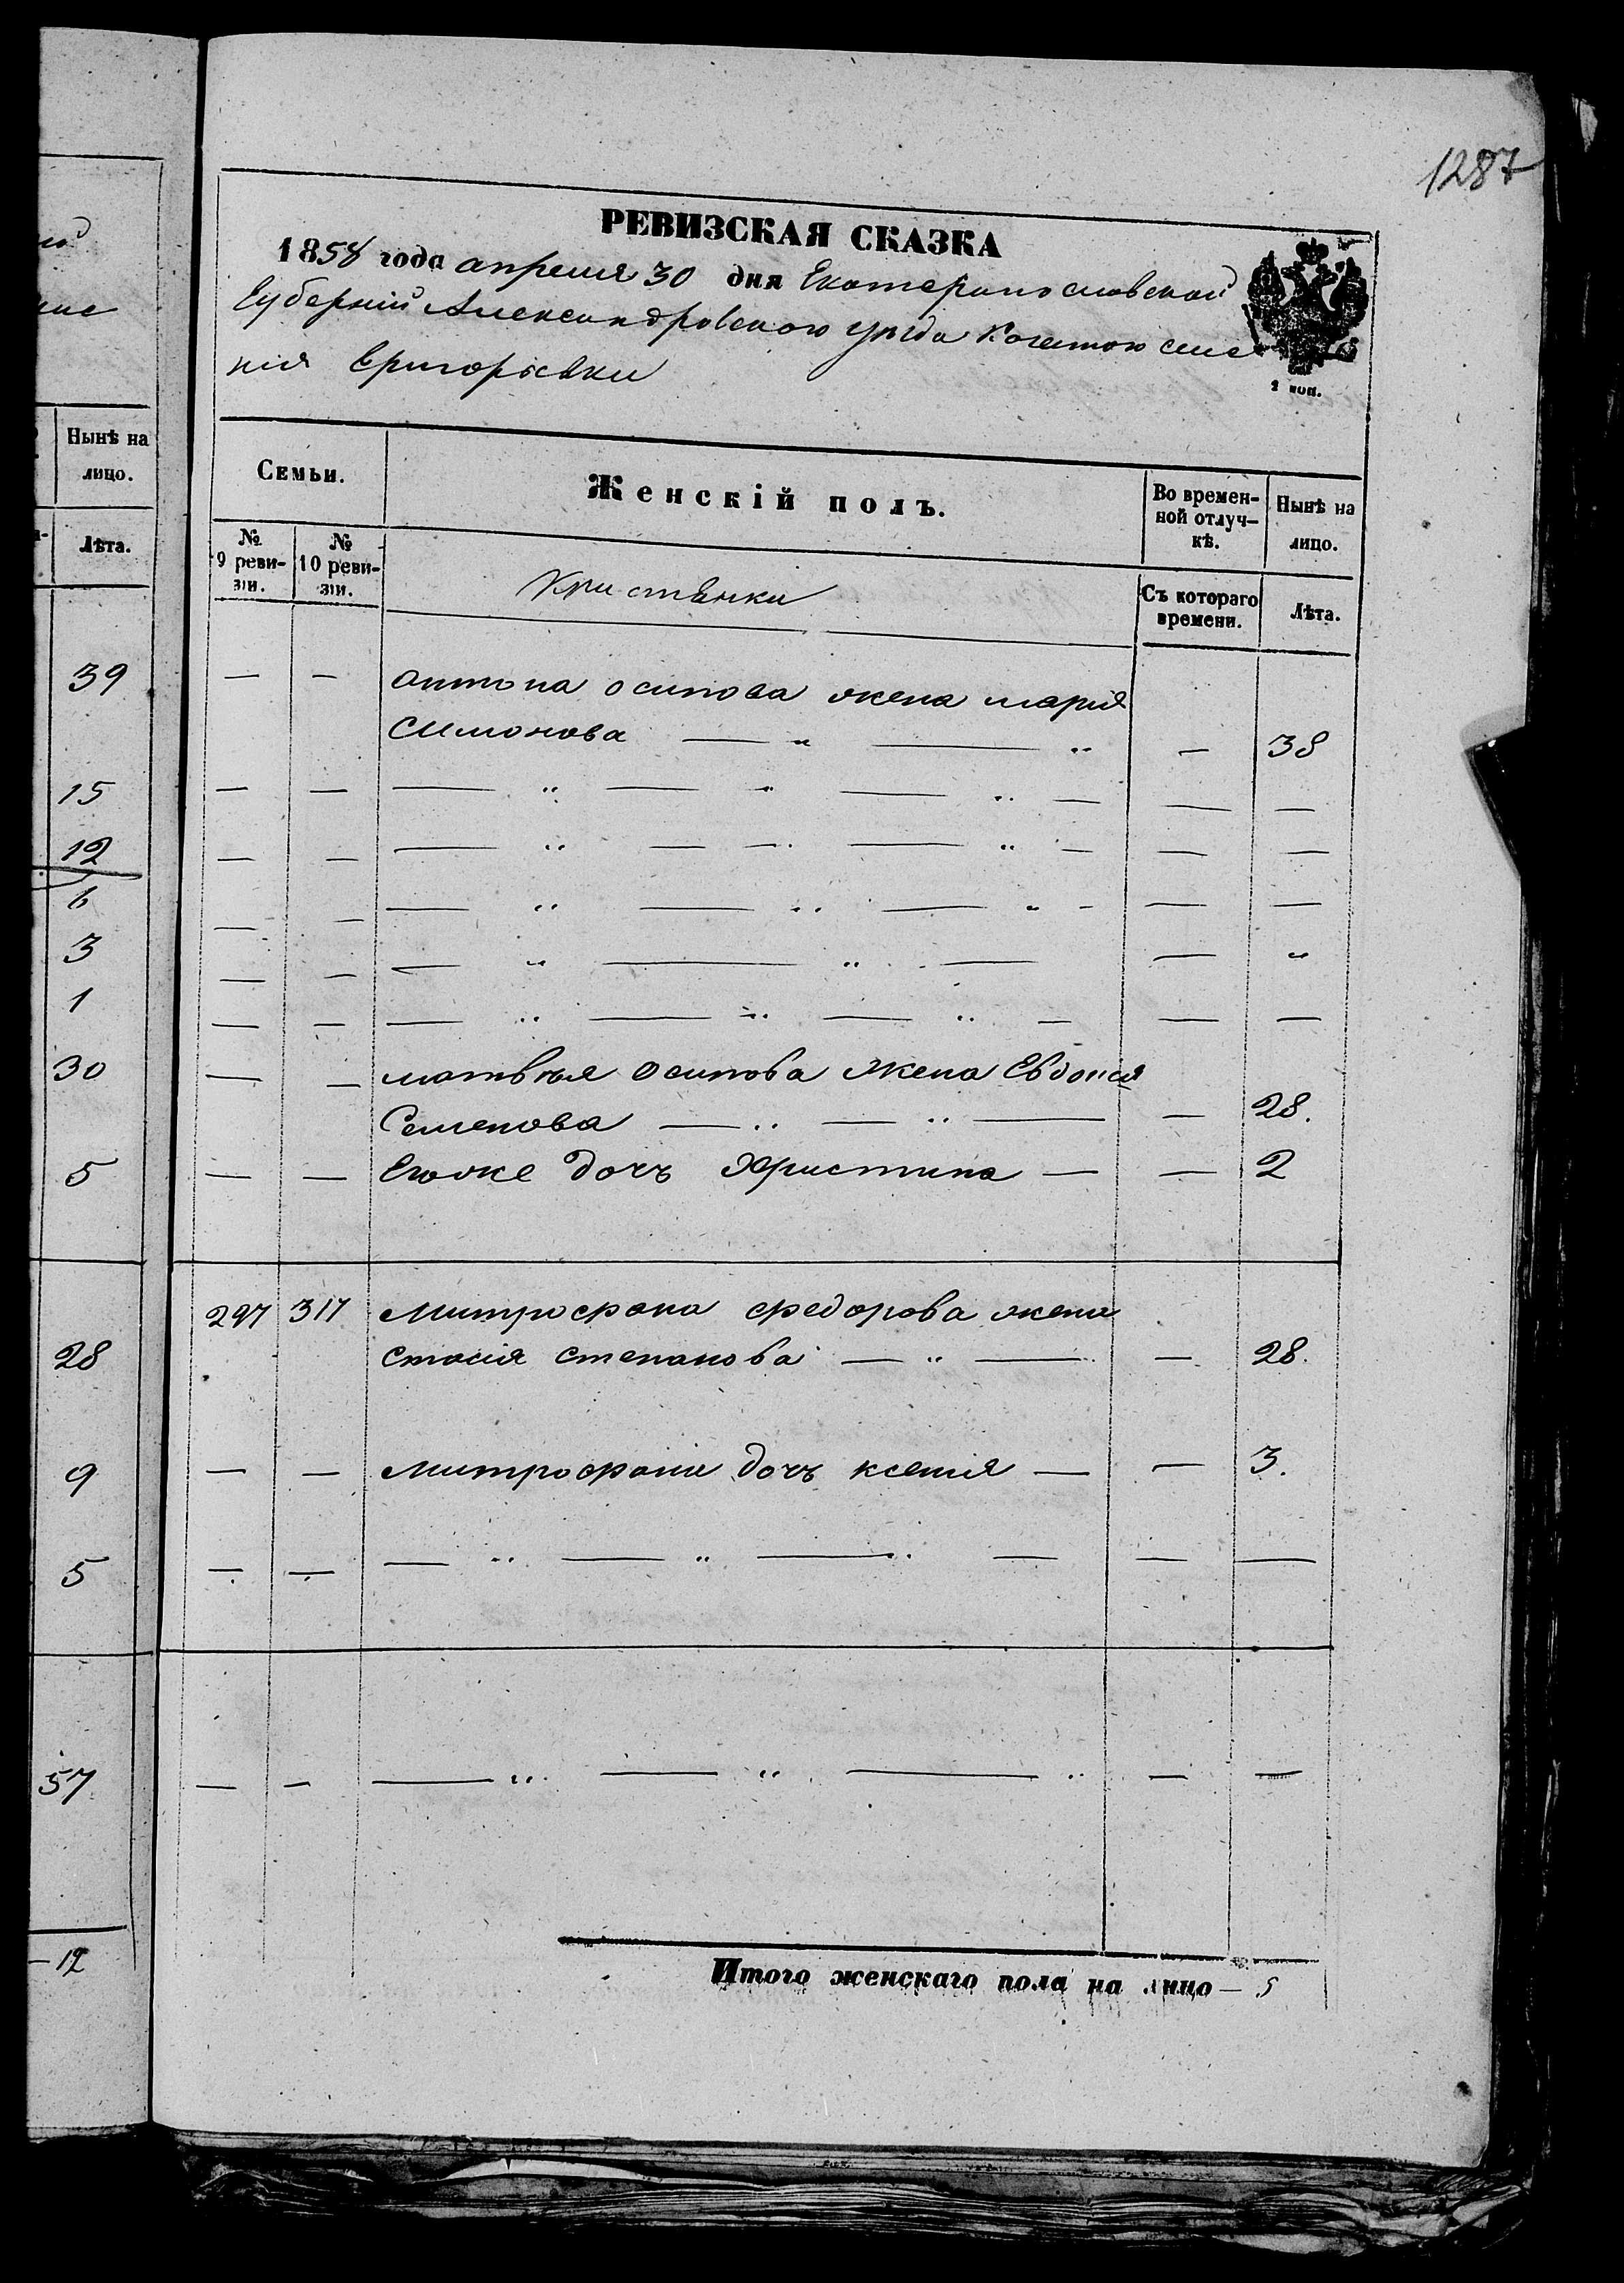 1287
РЕВИЗСКАЯ СКАЗКА
1858 года апреля 30 дня Екатеринославской
Губерніи Александровского уезда Казенного селе
нія Григорьевки
1 коп.
Нынѣ на
лицо.
Лѣта.
39
15
12
6
3
1
30
5
28
9
5
57
— 12
Семьи.
Женскій полъ.
Во времен-
ной отлуч-
кѣ.
Нынѣ на
лицо.
№
9 реви-
зіи.
№
10 реви-
зіи.
Съ котораго
времени.
Лѣта.
— — антона осипова жена марія
Симонова — " — " — 38
— — — " — " — " — — —
— — — " — — " — " — — —
— — — " — " — " - — —
— — — " — " — — "
— — — " — " — " — — —
— — матвѣя осипова жена Евдокія
Семенова — " — " — — 28.
— — Егоже дочъ Христина — — 2
297 317 Митрофана федорова жена
стасія степанова — " — — 28.
— — митрофана дочъ ксенія — — 3.
— — — " — " — " — — —
— — — " — " — " — —
Итого женскаго пола на лицо — 5